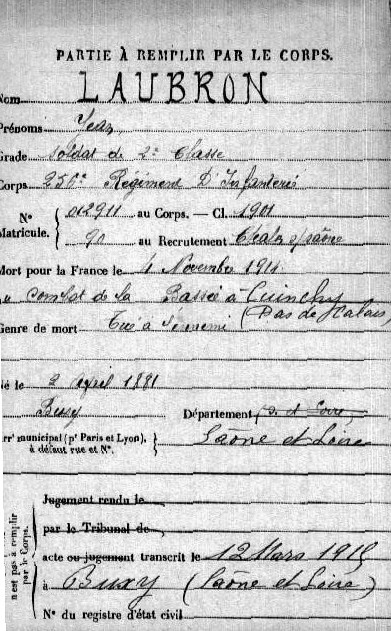 PARTIE À REMPLIR PAR LE CORPS.
Nom LAUBRON
Prénoms Jean
Grade Soldat de 2e Classe
Corps 256e Régiment D'Infanterie
N° Matricule. { 012911 au Corps. — Cl. 1901
90 au Recrutement Chalon s/Saône
Mort pour la France le 4 Novembre 1914
au combat de la Bassée à Cuinchy
(Pas de Calais)
Genre de mort Tué à l'ennemi
Né le 2 Avril 1881
Buxy Département S. et Loire
Arrt municipal (pr Paris et Lyon), à défaut rue et N°. } Saône et Loire
n'est pas à remplir par le Corps.
Jugement rendu le
par le Tribunal de
acte ou jugement transcrit le 12 Mars 1915
à Buxy (Saône et Loire)
N° du registre d'état civil